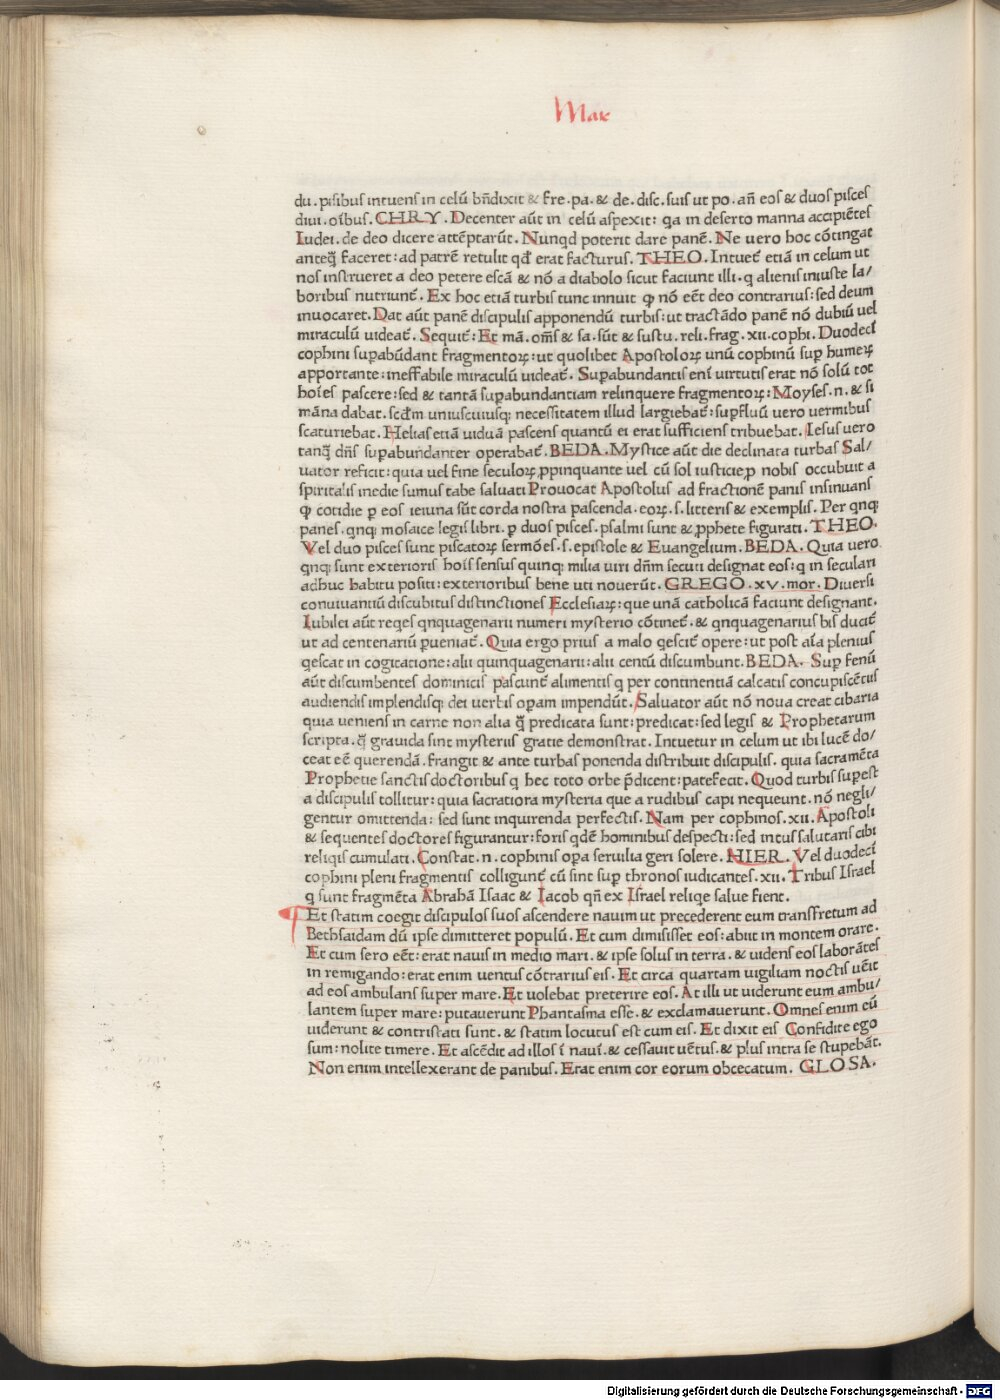 Mar
du. pisibus intuens in celū bn̄dixit & fre. pa. & de. disc. suis ut po. añ eos & duos pisces
diui. oı̄bus. CHRY. Decenter aūt in celū aspexit: qa in deserto manna accipiētes
Iudei. de deo dicere attēptarūt. Nunqd poterit dare panē. Ne uero hoc cōtingat
anteq̄ faceret: ad patrē retulit qd̄ erat facturus. THEO. Intuet̄ etiā in celum ut
nos instrueret a deo petere escā & nō a diabolo sicut faciunt illi. q alienis iniuste la/
boribus nutriunt̄. Ex hoc etiā turbis tunc innuit ꝙ nō eēt deo contrarius: sed deum
inuocaret. Dat aūt panē discipulis apponendū turbis: ut tractādo panē nō dubiū uel
miraculū uideat̄. Sequit̄: Et mā. om̄s & sa. sūt & sustu. reli. frag. xii. cophi. Duodecī
cophini suꝑabūdant fragmentoꝝ: ut quolibet Apostoloꝝ unū cophinū suꝑ humeꝝ
apportante: ineffabile miraculū uideat̄. Suꝑabundantis enī uirtutis erat nō solū tot
hoı̄es pascere: sed & tantā suꝑabundantiam relinquere fragmentoꝝ: Moyses. n. & si
māna dabat. scd̄m uniuscuiusqꝫ necessitatem illud largiebat̄: suꝑfluū uero uermibus
scaturiebat. Helias etiā uiduā pascens quantū ei erat sufficiens tribuebat. Iesus uero
tanq̄ dn̄s suꝑabundanter operabat̄. BEDA. Mystice aūt die declinata turbas Sal/
uator reficit: quia uel fine seculoꝝ ꝓpinquante uel cū sol iusticie ꝓ nobis occubuit a
spiritalis inedie sumus tabe saluati Prouocat Apostolus ad fractionē panis insinuans
ꝙ cotidie ꝑ eos ieiuna sūt corda nostra pascenda. eoꝝ. s. litteris & exemplis. Per qnqꝫ
panes. qnqꝫ mosaice legis libri. ꝑ duos pisces. psalmi sunt & ꝓphete figurati. THEO.
Vel duo pisces sunt piscatoꝝ sermōes. s. epistole & Euangelium. BEDA. Quia uero
qnqꝫ sunt exterioris hoı̄s sensus quinqꝫ milia uiri dn̄m secuti designat eos: q in seculari
adhuc habitu positi: exterioribus bene uti nouerūt. GREGO. xv. mor. Diuersi
conuiuantiū discubitus distinctiones Ecclesiaꝝ: que unā catholicā faciunt designant.
Iubilei aūt reqes qnquagenarii numeri mysterio cōtinet̄. & qnquagenarius bis ducit̄
ut ad centenariū ꝑueniat̄. Quia ergo prius a malo qescit̄ opere: ut post aı̄a plenius
qescat in cogitatione: alii quinquagenarii: alii centū discumbunt. BEDA. Suꝑ fenū
aūt discumbentes dominicis pascunt̄ alimentis q per continentiā calcatis concupiscētiis
audiendis implendisqꝫ dei uerbis oꝑam impendūt. Saluator aūt nō noua creat cibaria
quia ueniens in carne non alia q̄ predicata sunt: predicat: sed legis & Prophetarum
scripta. q̄ grauida sint mysteriis gratie demonstrat. Intuetur in celum ut ibi lucē do/
ceat eē querendā. frangit & ante turbas ponenda distribuit discipulis. quia sacramēta
Prophetie sanctis doctoribus q hec toto orbe p̄dicent: patefecit. Quod turbis suꝑest
a discipulis tollitur: quia sacratiora mysteria que a rudibus capi nequeunt. nō negli/
gentur omittenda: sed sunt inquirenda perfectis. Nam per cophinos. xii. Apostoli
& sequentes doctores figurantur: foris qdē hominibus despecti: sed intus salutaris cibi
reliqis cumulati. Constat. n. cophinis oꝑa seruilia geri solere. HIER. Vel duodecī
cophini pleni fragmentis colligunt̄ cū sint suꝑ thronos iudicantes. xii. Tribus Israel
q sunt fragmēta Abrahā Isaac & Iacob qn̄ ex Israel reliqe salue fient.
Et statim coegit discipulos suos ascendere nauim ut precederent eum transfretum ad
Bethsaidam dū ipse dimitteret populū. Et cum dimisisset eos: abiit in montem orare.
Et cum sero eēt: erat nauis in medio mari. & ipse solus in terra. & uidens eos laborātes
in remigando: erat enim uentus cōtrarius eis. Et circa quartam uigiliam noctis uēit
ad eos ambulans super mare. Et uolebat preterire eos. At illi ut uiderunt eum ambu/
lantem super mare: putauerunt Phantasma esse. & exclamauerunt. Omnes enim eū
uiderunt & contristati sunt. & statim locutus est cum eis. Et dixit eis Confidite ego
sum: nolite timere. Et ascēdit ad illos ī nauī. & cessauit uētus. & plus intra se stupebāt.
Non enim intellexerant de panibus. Erat enim cor eorum obcecatum. GLOSA.
Digitalisierung gefördert durch die Deutsche Forschungsgemeinschaft - DFG